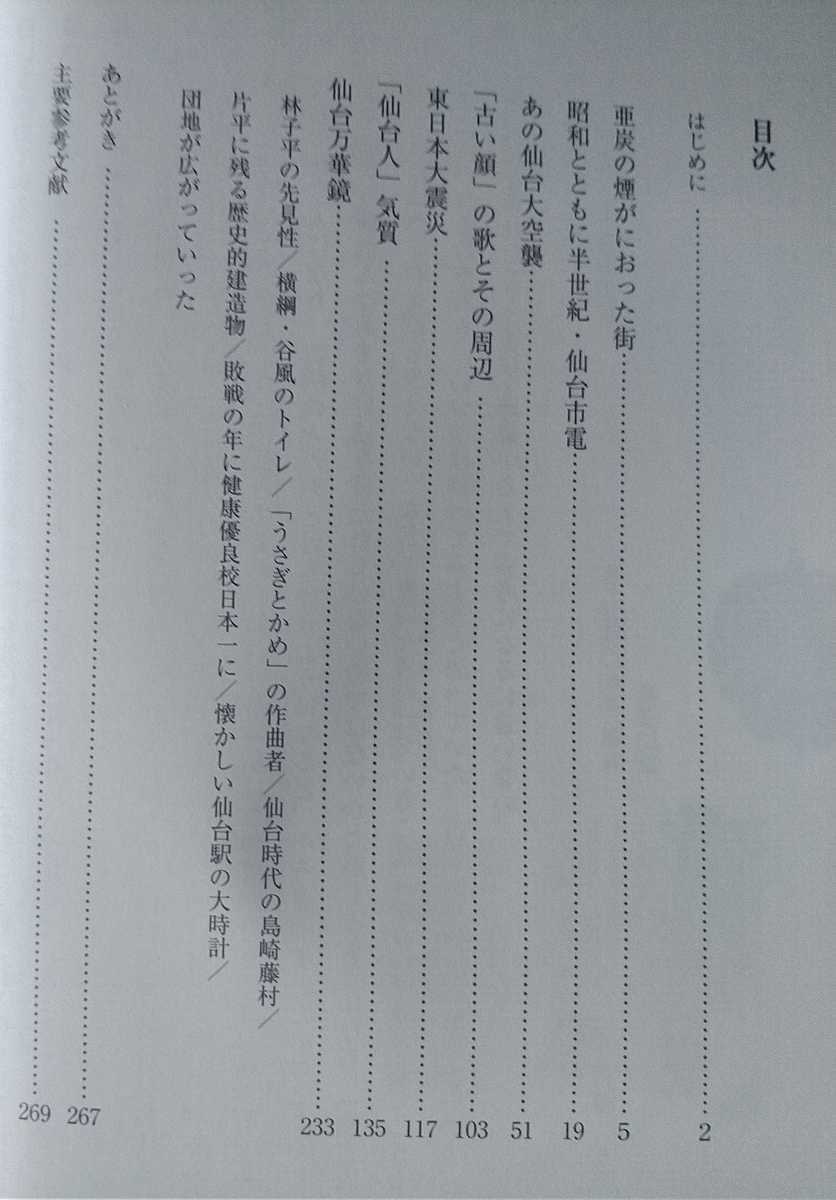 目次
はじめに……2
亜炭の煙がにおった街……5
昭和とともに半世紀・仙台市電……19
あの仙台大空襲……51
「古い顔」の歌とその周辺……103
東日本大震災……117
「仙台人」気質……135
仙台万華鏡……233
林子平の先見性／横綱・谷風のトイレ／「うさぎとかめ」の作曲者／仙台時代の島崎藤村／
片平に残る歴史的建造物／敗戦の年に健康優良校日本一に／懐かしい仙台駅の大時計／
団地が広がっていった
あとがき……267
主要参考文献……269